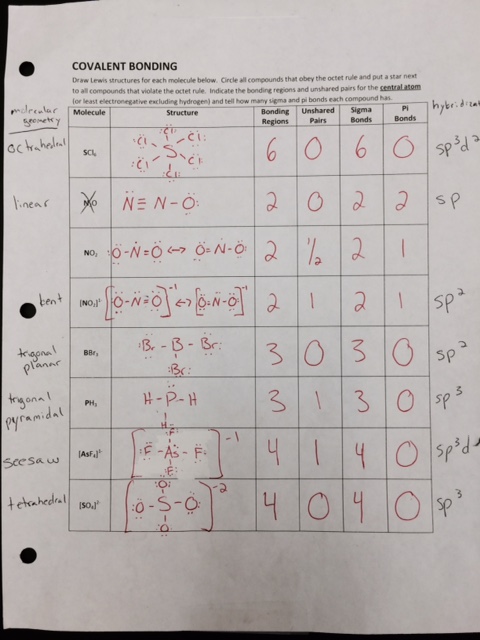 COVALENT BONDING
Draw Lewis structures for each molecule below. Circle all compounds that obey the octet rule and put a star next
to all compounds that violate the octet rule. Indicate the bonding regions and unshared pairs for the central atom
(or least electronegative excluding hydrogen) and tell how many sigma and pi bonds each compound has.
molecular geometry Molecule Structure Bonding Regions Unshared Pairs Sigma Bonds Pi Bonds
octahedral SCl₆ :Cl: :Cl Cl: S :Cl Cl: :Cl: 6 0 6 0 sp³d²
linear N≡N-O: 2 0 2 2 sp
NO₂ :O-N=O ↔ O=N-O: 2 ½ 2 1
bent [NO₂]¹⁻ [:O-N=O]⁻¹ ↔ [O=N-O:]⁻¹ 2 1 2 1 sp²
trigonal planar BBr₃ :Br-B-Br: :Br: 3 0 3 0 sp²
trigonal pyramidal PH₃ H-P-H H 3 1 3 0 sp³
seesaw [AsF₄]¹⁻ [:F: :F-As-F: :F:]⁻¹ 4 1 4 0 sp³d
tetrahedral [SO₄]²⁻ [:O: :O-S-O: :O:]⁻² 4 0 4 0 sp³